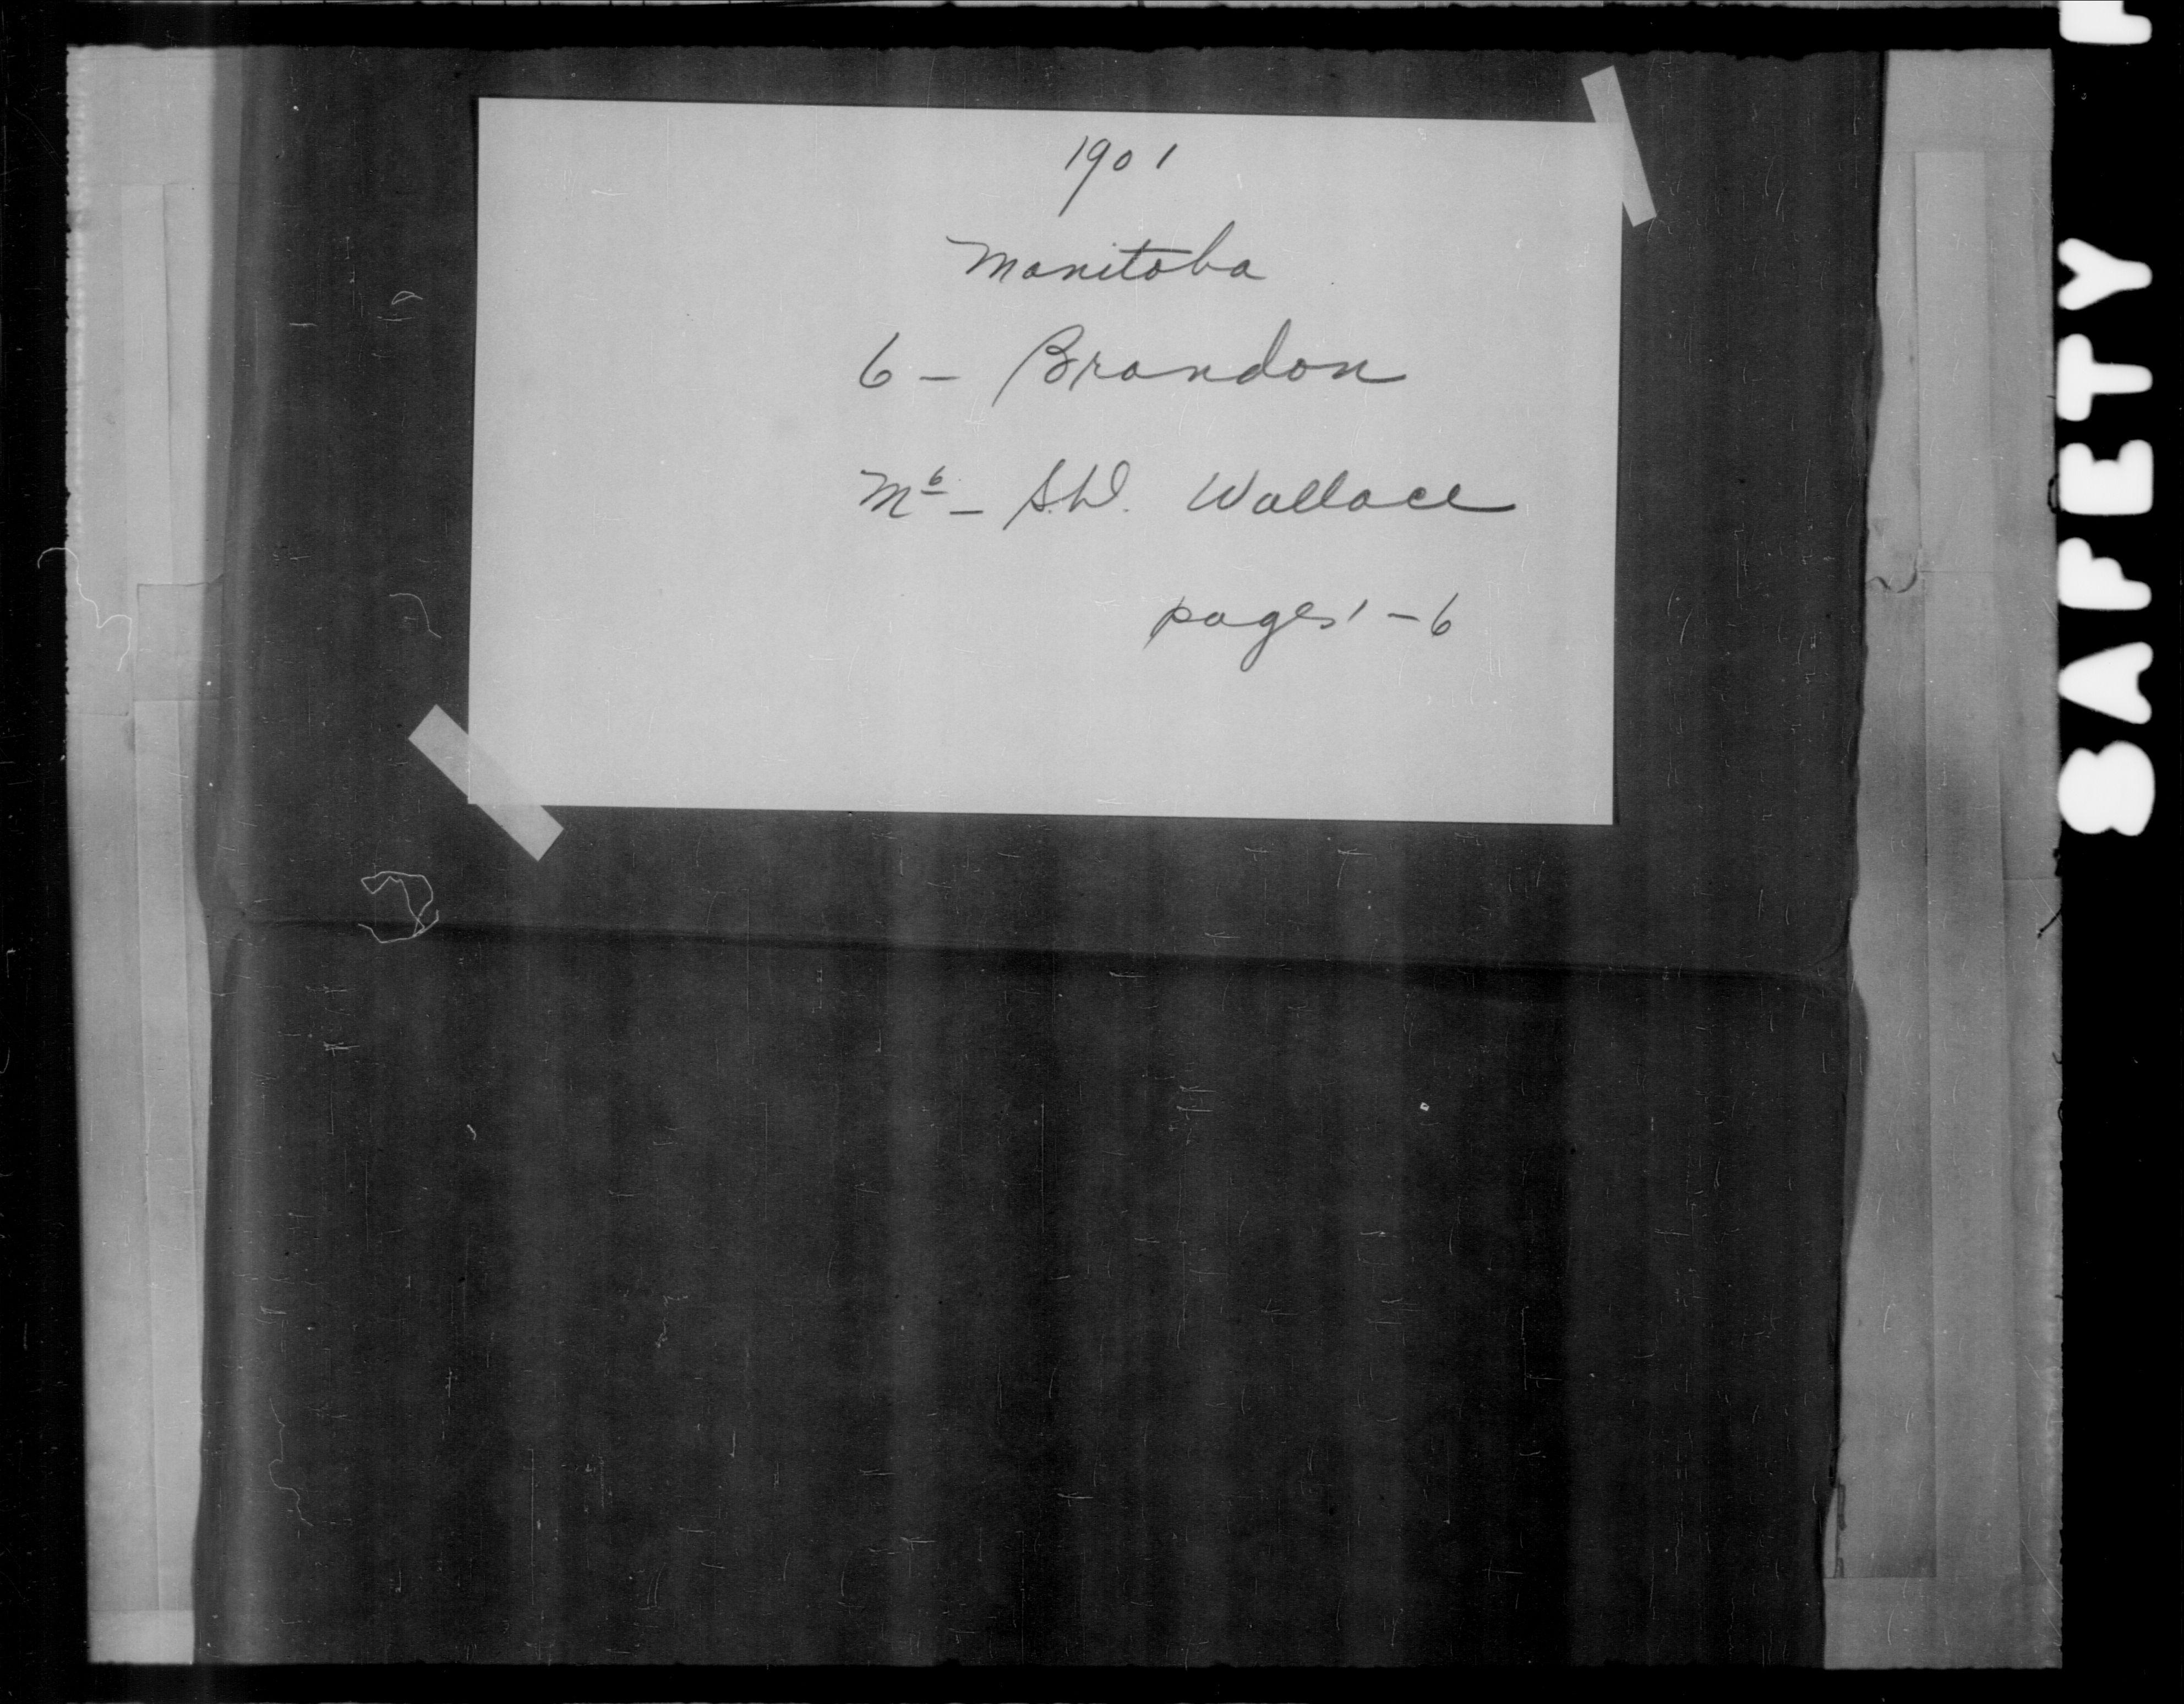 1901
Manitoba
6 - Brandon
M6 - S.W. Wallace
pages 1-6
SAFETY